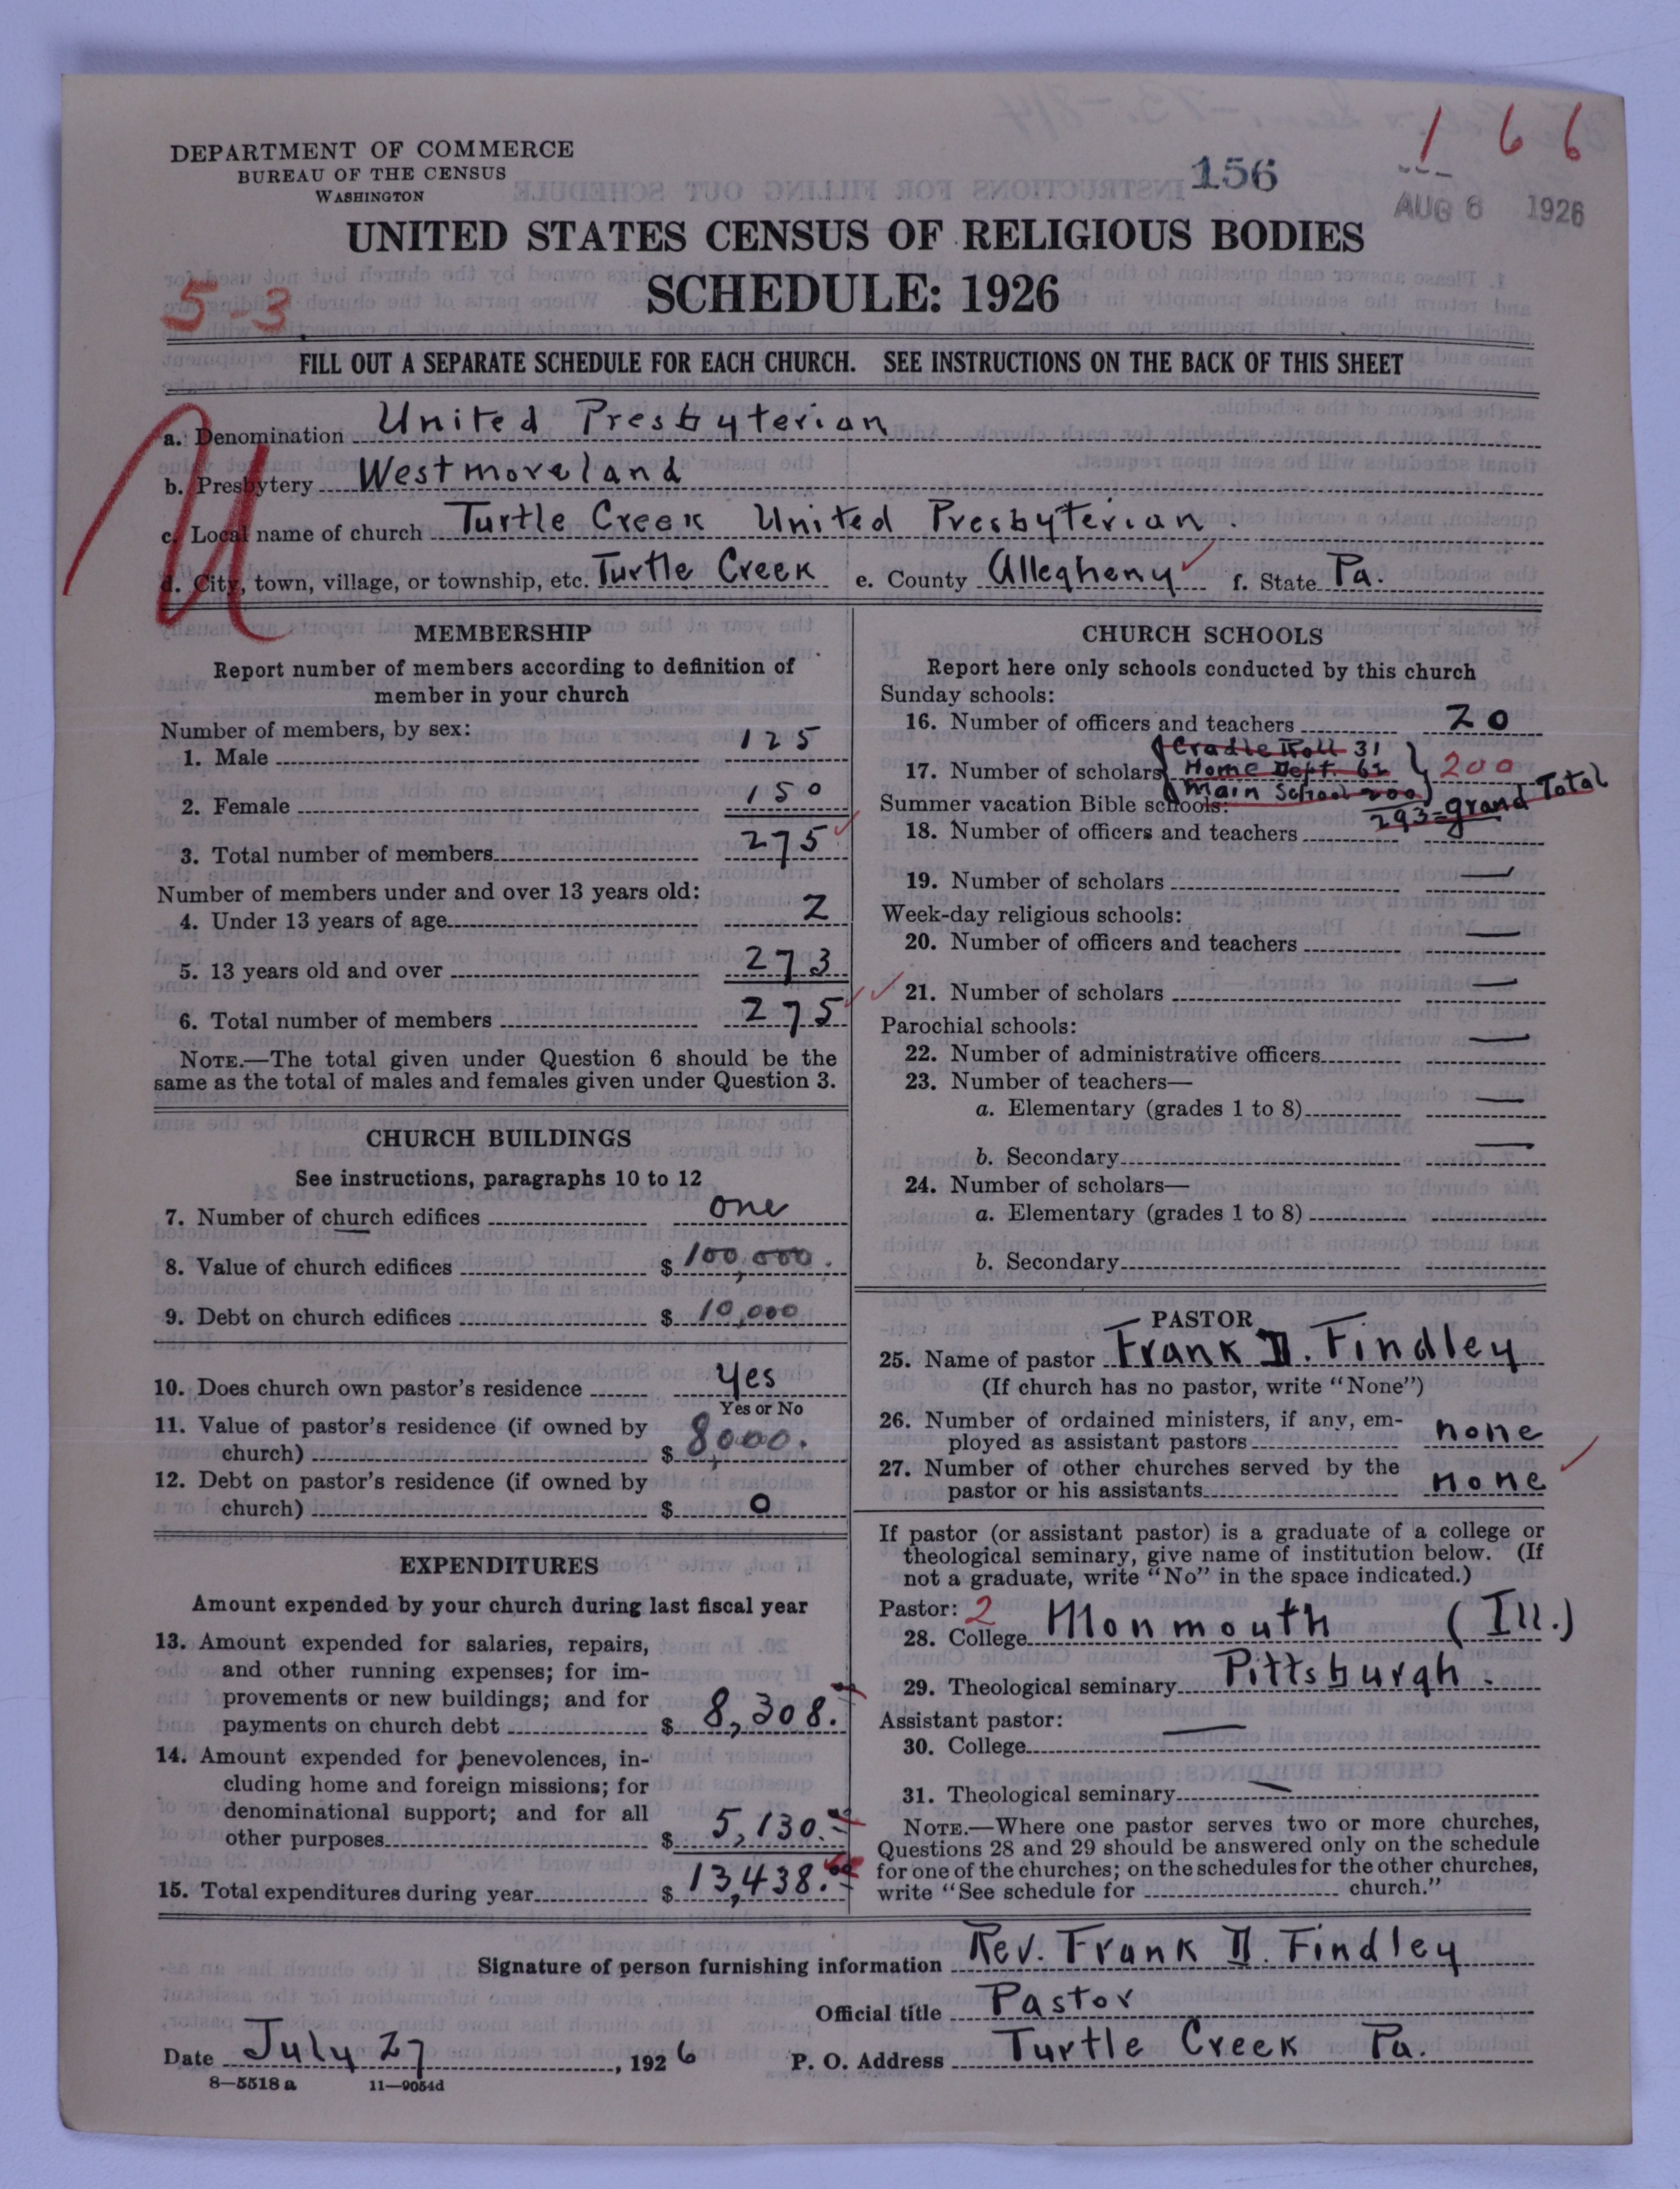 1 6 6
DEPARTMENT OF COMMERCE
BUREAU OF THE CENSUS
WASHINGTON
156
AUG 6 1926
UNITED STATES CENSUS OF RELIGIOUS BODIES
SCHEDULE: 1926
5-3
FILL OUT A SEPARATE SCHEDULE FOR EACH CHURCH. SEE INSTRUCTIONS ON THE BACK OF THIS SHEET
a. Denomination United Presbyterian
b. Presbytery Westmoreland
c. Local name of church Turtle Creek United Presbyterian.
d. City, town, village, or township, etc. Turtle Creek e. County Allegheny f. State Pa.
MEMBERSHIP
Report number of members according to definition of
member in your church
Number of members, by sex:
1. Male 125
2. Female 150
3. Total number of members 275
Number of members under and over 13 years old:
4. Under 13 years of age 2
5. 13 years old and over 273
6. Total number of members 275
NOTE.—The total given under Question 6 should be the
same as the total of males and females given under Question 3.
CHURCH BUILDINGS
See instructions, paragraphs 10 to 12
7. Number of church edifices one
8. Value of church edifices $ 100,000.
9. Debt on church edifices $ 10,000
10. Does church own pastor's residence Yes
Yes or No
11. Value of pastor's residence (if owned by
church) $ 8,000.
12. Debt on pastor's residence (if owned by
church) $ 0
EXPENDITURES
Amount expended by your church during last fiscal year
13. Amount expended for salaries, repairs,
and other running expenses; for im-
provements or new buildings; and for
payments on church debt $ 8,308.
14. Amount expended for benevolences, in-
cluding home and foreign missions; for
denominational support; and for all
other purposes $ 5,130.
15. Total expenditures during year $ 13,438.
CHURCH SCHOOLS
Report here only schools conducted by this church
Sunday schools:
16. Number of officers and teachers 20
Cradle Roll 31
17. Number of scholars Home Dept. 62 200
Main School 200
293=grand Total
Summer vacation Bible schools:
18. Number of officers and teachers
19. Number of scholars —
Week-day religious schools:
20. Number of officers and teachers —
21. Number of scholars —
Parochial schools:
22. Number of administrative officers —
23. Number of teachers—
a. Elementary (grades 1 to 8) —
b. Secondary —
24. Number of scholars—
a. Elementary (grades 1 to 8)
b. Secondary
PASTOR
25. Name of pastor Frank D. Findley
(If church has no pastor, write "None")
26. Number of ordained ministers, if any, em-
ployed as assistant pastors none
27. Number of other churches served by the
pastor or his assistants none
If pastor (or assistant pastor) is a graduate of a college or
theological seminary, give name of institution below. (If
not a graduate, write "No" in the space indicated.)
Pastor: 2
28. College Monmouth (Ill.)
29. Theological seminary Pittsburgh.
Assistant pastor:
30. College —
31. Theological seminary —
NOTE.—Where one pastor serves two or more churches,
Questions 28 and 29 should be answered only on the schedule
for one of the churches; on the schedules for the other churches,
write "See schedule for church."
Signature of person furnishing information Rev. Frank D. Findley
Official title Pastor
Date July 27, 1926 P. O. Address Turtle Creek Pa.
8—5518 a 11—9054d